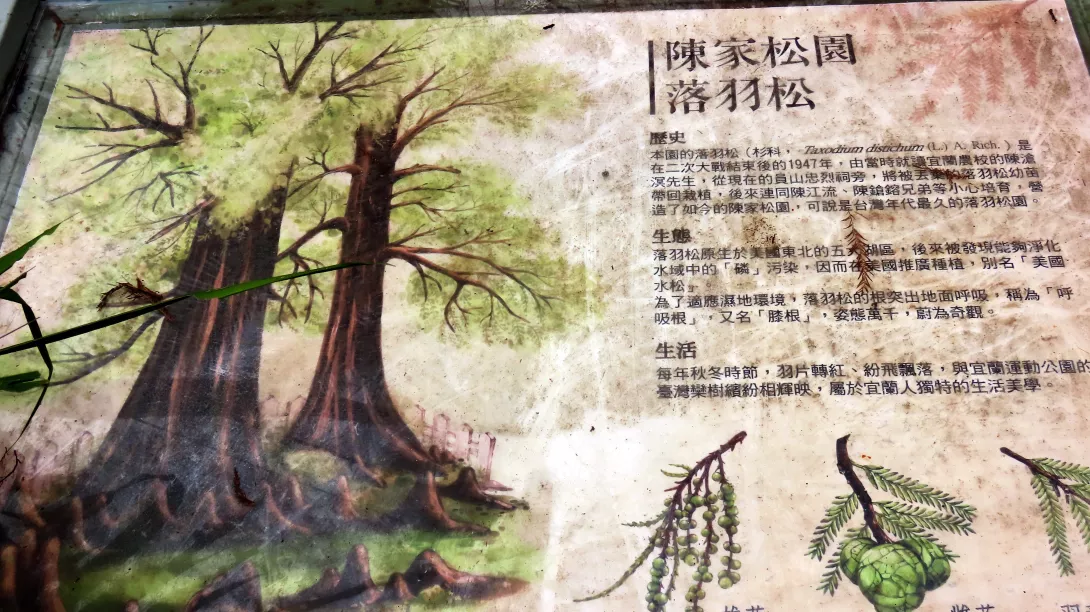 陳家松園
落羽松
歷史
本園的落羽松（杉科，Taxodium distichum (L.) A. Rich.）是
在二次大戰結束後的1947年，由當時就讀宜蘭農校的陳滄
溟先生，從現在的員山忠烈祠旁，將被丟棄的落羽松幼苗
帶回栽植，後來連同陳江流、陳鎗鎔兄弟等小心培育，營
造了如今的陳家松園，可說是台灣年代最久的落羽松園。
生態
落羽松原生於美國東北的五大湖區，後來被發現能夠淨化
水域中的「磷」污染，因而在美國推廣種植，別名「美國
水松」。
為了適應濕地環境，落羽松的根突出地面呼吸，稱為「呼
吸根」，又名「膝根」，姿態萬千，蔚為奇觀。
生活
每年秋冬時節，羽片轉紅、紛飛飄落，與宜蘭運動公園的
臺灣欒樹繽紛相輝映，屬於宜蘭人獨特的生活美學。